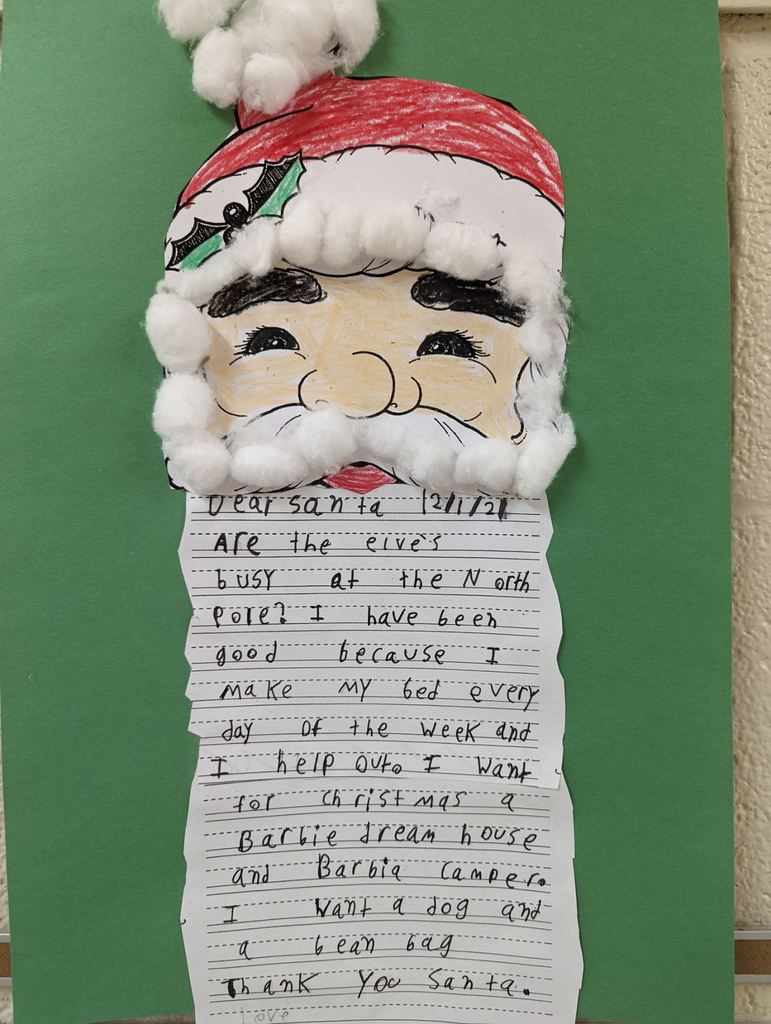 Dear santa 12/1/21
Are the elve's
busy at the North
Pole? I have been
good because I
make my bed every
day of the week and
I help out. I want
for christmas a
Barbie dream house
and Barbia camper.
I want a dog and
a bean bag
Thank you santa.
Love